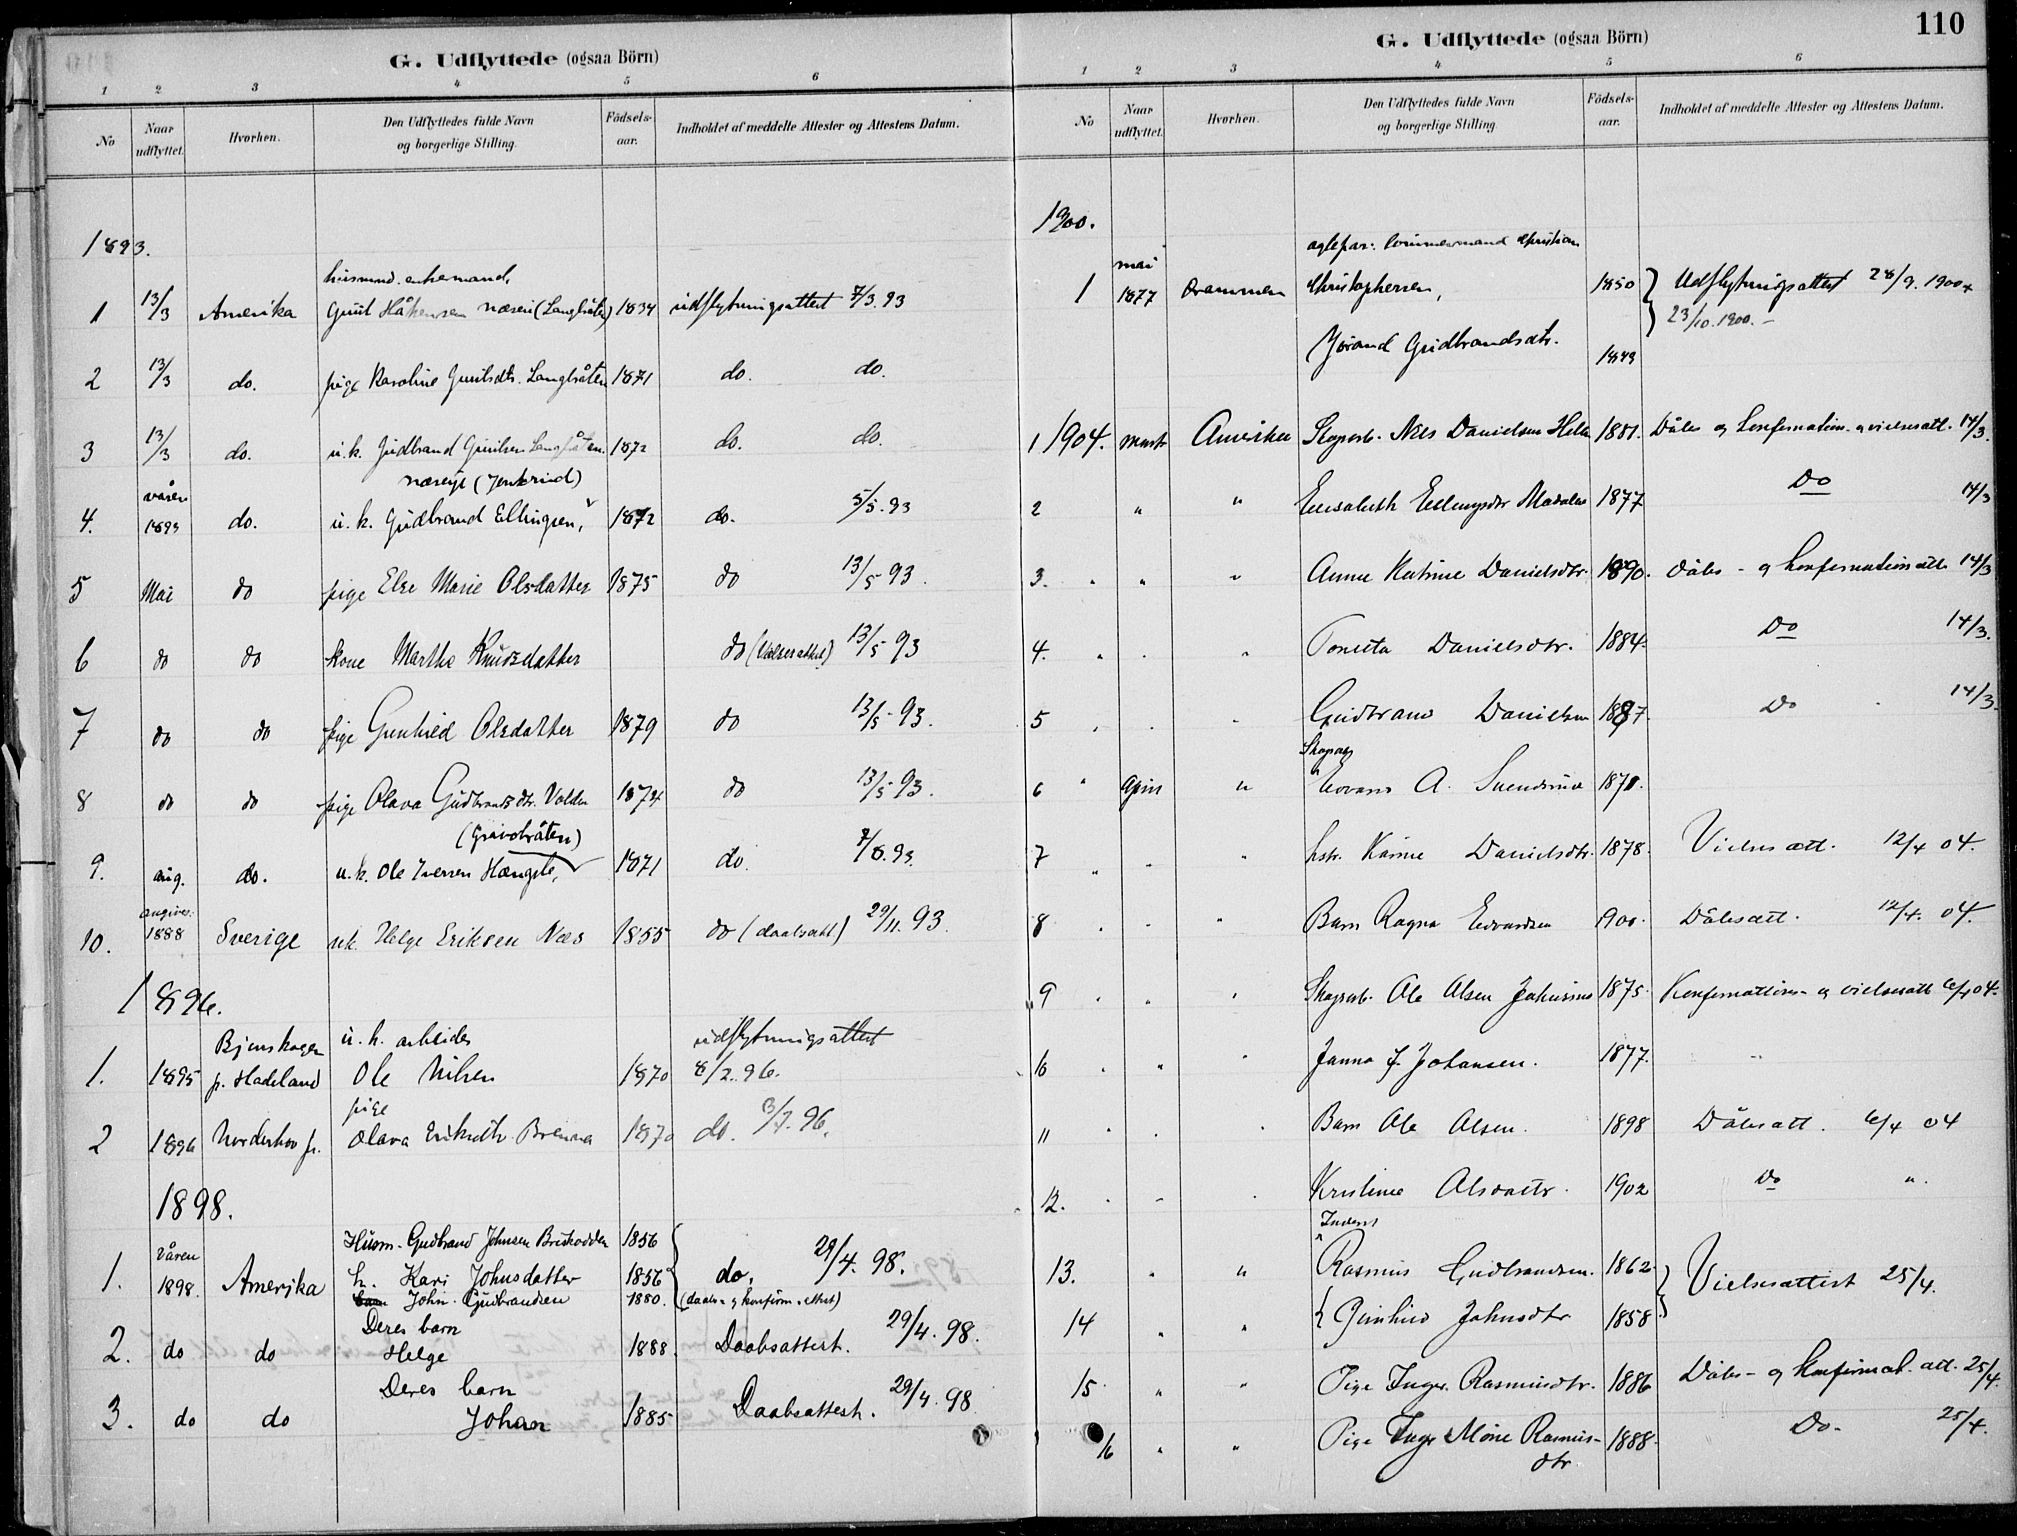 G. Udflyttede (ogsaa Börn)
1 2 3 4 5 6
No Naar udflyttet. Hvorhen. Den Udflyttedes fulde Navn og borgerlige Stilling. Födsels-aar. Indholdet af meddelte Attester og Attestens Datum.
1893.
husmand enkemand,
1 13/3 Amerika Gulbrand Næsen (Langbråten) 1834 udflytningsattest 7/3.93
2 13/3 do. pige Karoline Langbråten 1871 do. do.
3 13/3 do. u.k. Gudbrand Langbråten 1872 do. do.
våren
4. 1893 do. u.k. Gudbrand Ellingsen, 1872 do. 5/5.93
5 Mai do pige Else Marie Olsdatter 1875 do 13/5 93.
6 do do kone Marthe Knudsdatter do 13/5 93
7 do do pige Gunhild Olsdatter 1879 do 13/5 93.
8 do do pige Olava Gudbrandsdtr. Volden 1874 do 13/5 93.
9. aug. do. u.k. Ole Iversen 1871 do. 7/8.93
angives:
10. 1888 Sverige uk. Helge Eriksen Næs 1855 do (daabsatt) 29/11.93.
1896.
u.k. arbeider udflytningsattest
1. 1895 p. Hadeland Ole Nilsen 1870 8/2.96.
pige
2 1896 Norderhov p. Olava Eriksdtr. Brenna 1870 do. 3/7.96.
1898.
Husm. Gudbrand Johnsen 1856
Våren
1. 1898. Amerika h. Kari Johnsdatter 1856 do. 29/4.98.
John Gudbrandsen 1880. (daabs- og konfirm.attest)
Deres barn
2. do do Helge 1888. Daabsattest. 29/4.98.
Deres barn
3. do do Johan 1885 Daabsattest. 29/4.98
G. Udflyttede (ogsaa Börn) 110
1 2 3 4 5 6
No Naar udflyttet. Hvorhen. Den Udflyttedes fulde Navn og borgerlige Stilling. Födsels-aar. Indholdet af meddelte Attester og Attestens Datum.
1900.
ægtepar: tømmermand Christian
mai
1 1877 Drammen Christophersen, 1850 Udflytningsattest 28/9.1900
23/10.1900.
Jørand Gudbrandsdtr. 1849
1 1904. Marts Amerika Skogsarb. Nils Danielsen 1881. Dåbs og konfirmation. og vielsesatt. 14/3.
2 " " Elisabeth Ellingsdtr 1877 Do 14/3
3. " " " Anne Katrine Danielsdtr. 1890. Dåbs- og konfirmationsatt. 14/3
4. Tonetta Danielsdtr. 1884. Do 14/3.
5 Gudbrand Danielsen 1887. Do 14/3.
Skogsarb
6 " April " Edvard A. Svendsrud 1870.
7 " hstr. Karine Danielsdtr. 1878. Vielsesatt. 12/4 04.
8 Barn Ragna Edvardsen 1900. Dåbsatt. 12/4. 04.
9 Skogsarb. Ole Olsen 1875. Konfirmations- og vielsesatt 6/4 04.
10 Janna J. Johansen. 1877.
11 Barn Ole Olsen. 1898 Dåbsatt. 6/4 04
12. Kristine Olsdatr. 1902 Do ".
Inderst
13. " " Rasmus Gudbrandsen. 1862. Vielsesattest 25/4.
14 Gunhild Johnsdtr 1858
15 " " Pige Inger Rasmusdtr. 1886 Dåbs- og konfirmat. att. 25/4.
16 " " Pige Inger Rasmus- 1888. Do. 25/4.
dtr.